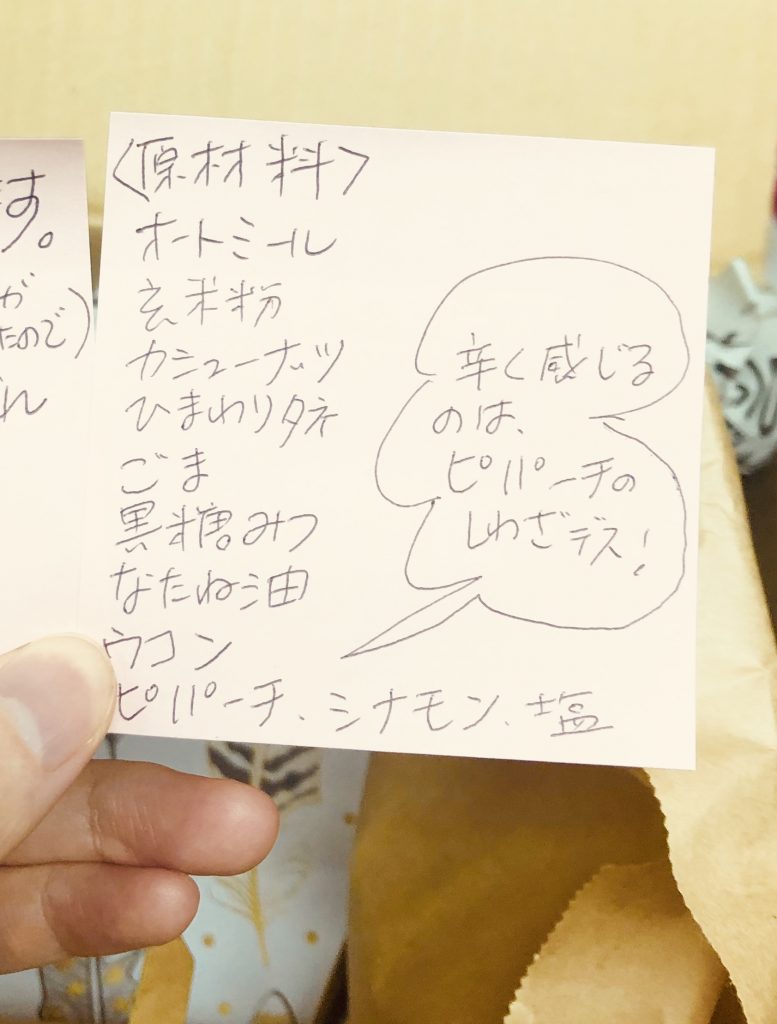 す。
が
たので)
〈原材料〉
オートミール
玄米粉
カシューナッツ
ひまわりタネ
ごま
黒糖みつ
なたね油
ウコン
ピパーチ、シナモン、塩
辛く感じる
のは、
ピパーチの
しわざデス!